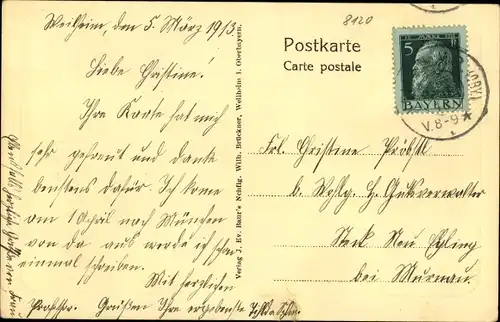 8120
Weilheim, den 5. März 1913.
Liebe Christine!
Ihre Karte hat mich
sehr gefreut und danke
bestens dafür. Ich kome
am 1 April nach München
von da aus werde ich schon
einmal schreiben.
Mit herzlichen
Grüßen Ihre ergebenste
Verlag J. Ev. Baur's Nchflg. Wilh. Brückner, Weilheim i. Oberbayern.
Postkarte
Carte postale
5
BAYERN
V.8-9
Frl. Christine Pröbstl
b. H. Gutsverwalter
Neu Egling
bei Murnau.